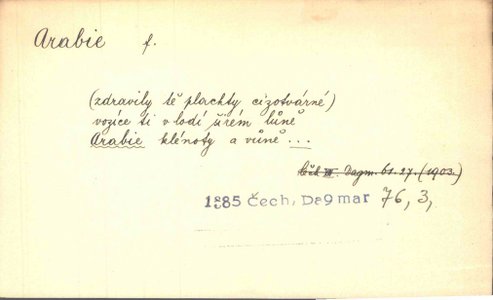 Arabie f.
(zdravily tě plachty cizotvárné)
vozíce ti v lodí širém lůně
Arabie klénoty a vůně ...
Čech III. Dagm. 61. 27. (1903.)
1885 Čech, Dagmar 76, 3,